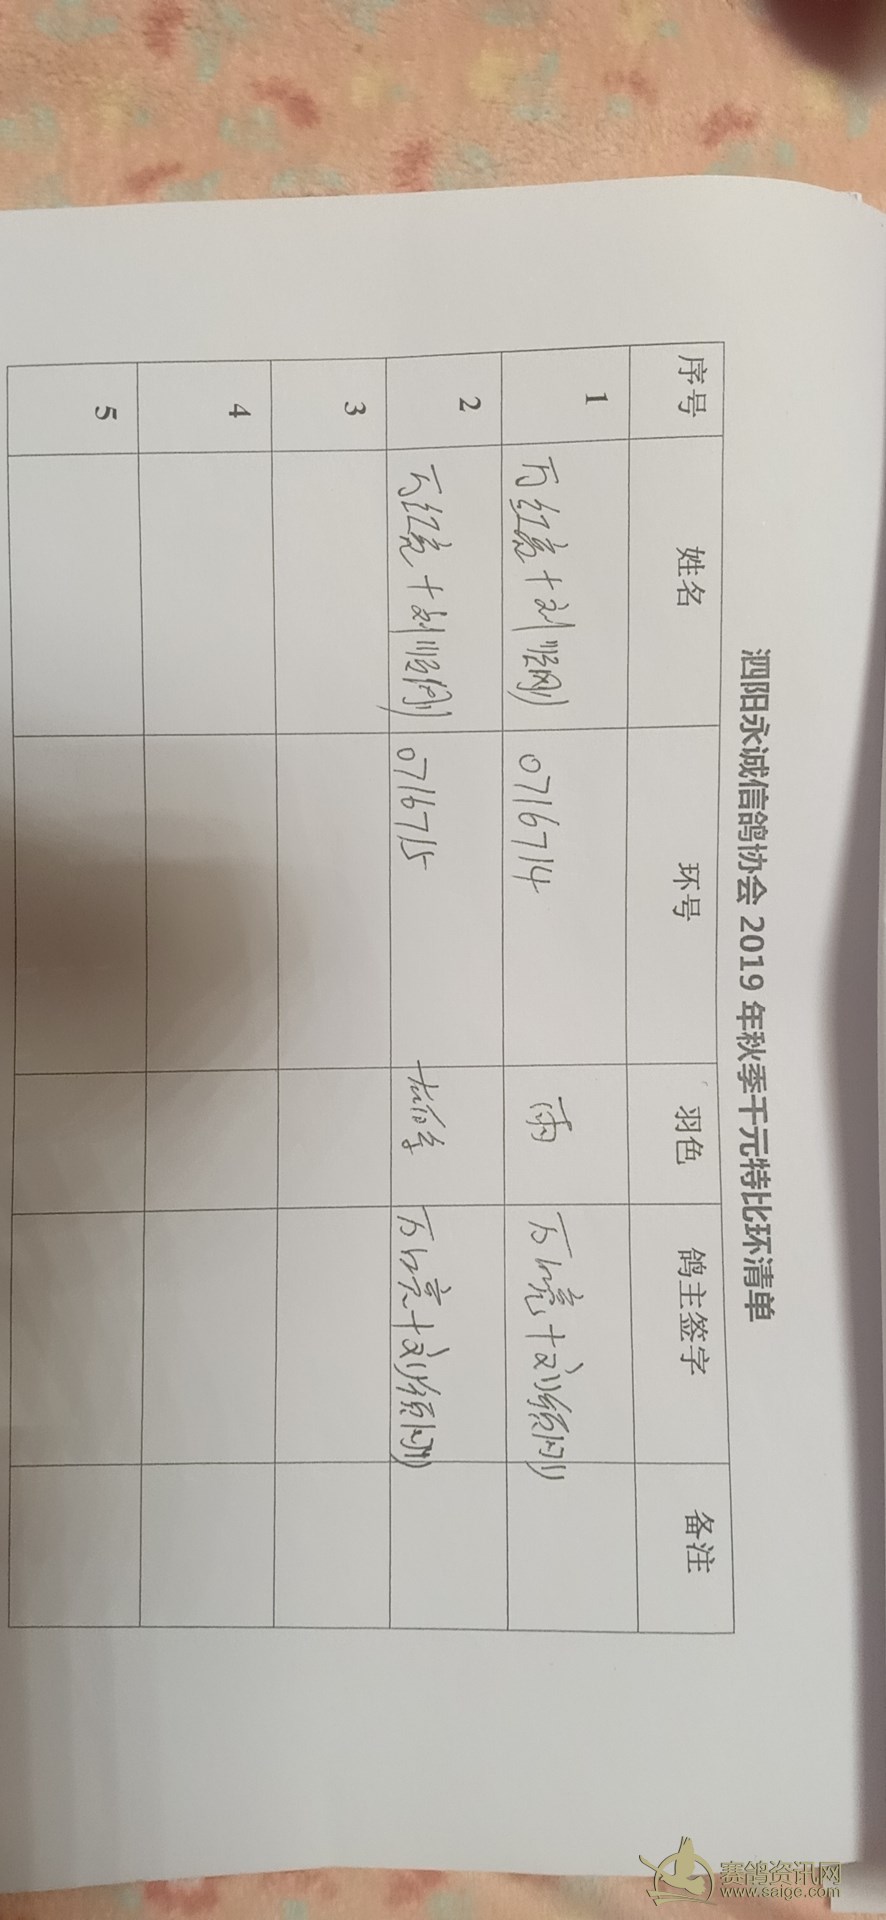 泗阳永诚信鸽协会 2019 年秋季千元特比环清单
序号 姓名 环号 羽色 鸽主签字 备注
1 万红亮+刘顺刚 0716714 雨 万红亮+刘顺刚
2 万红亮+刘顺刚 0716715 万红亮+刘顺刚
3
4
5
赛鸽资讯网
www.saigc.com